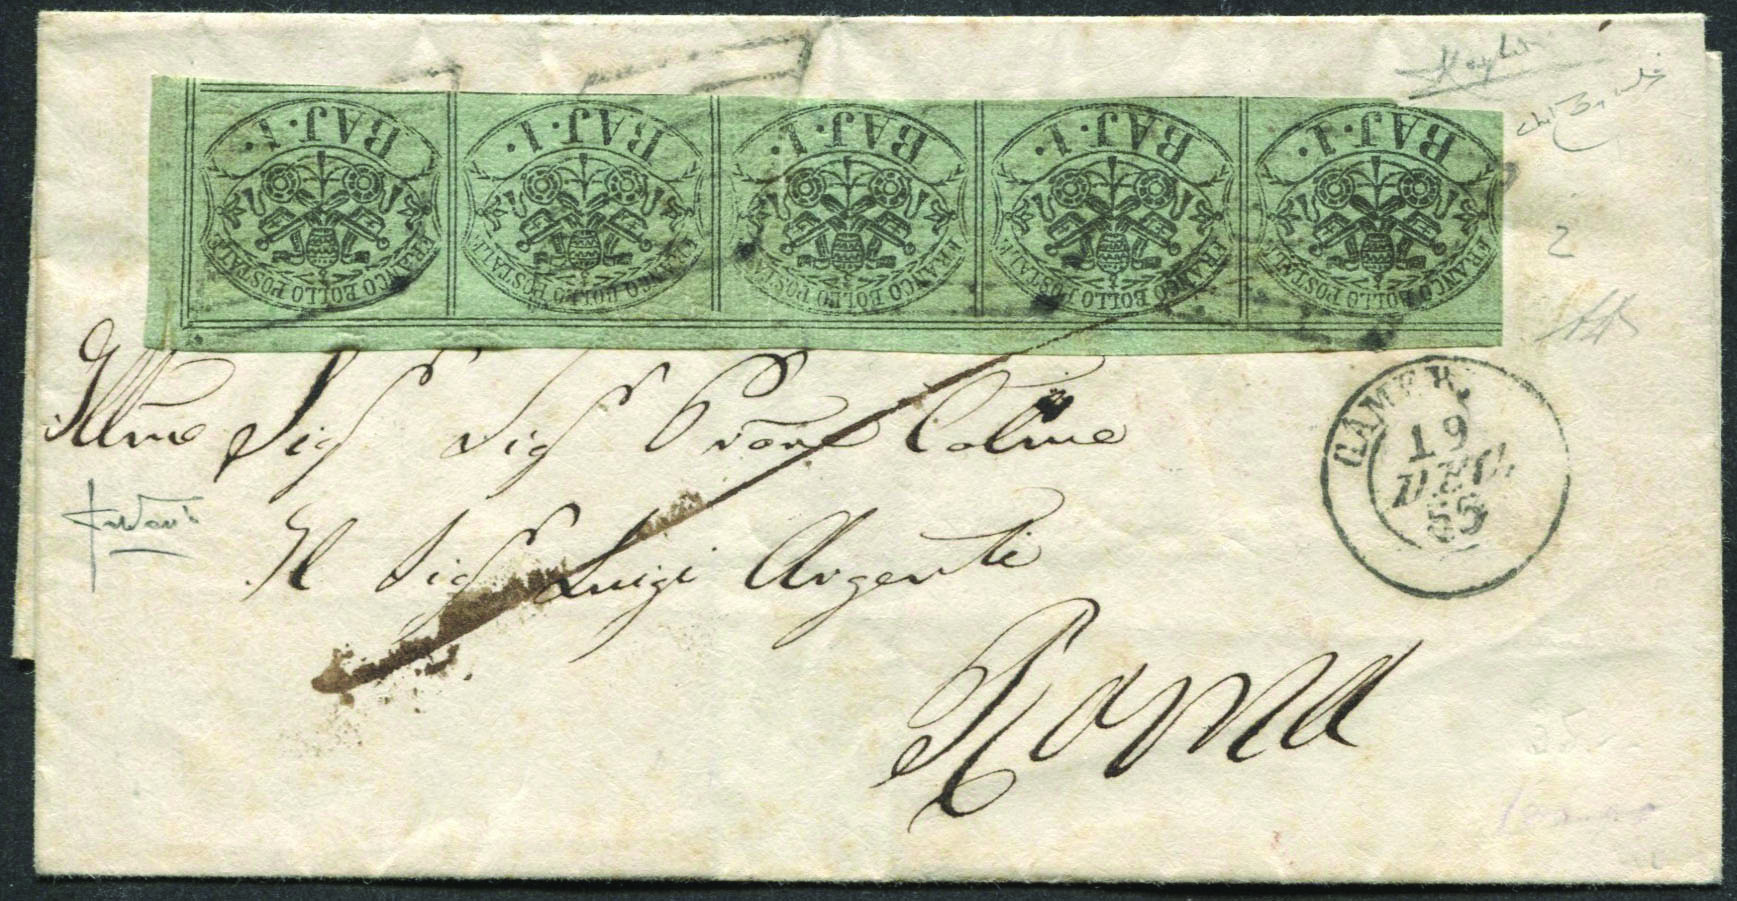 BAJ. 1. BAJ. 1. BAJ. 1. BAJ. 1. BAJ. 1.
FRANCO BOLLO POSTALE FRANCO BOLLO POSTALE FRANCO BOLLO POSTALE FRANCO BOLLO POSTALE FRANCO BOLLO POSTALE
2
CAMER.
19
DEC.
55
Illmo Sig Sig Prōne Colmo
Il Sig Luigi Argenti
Roma